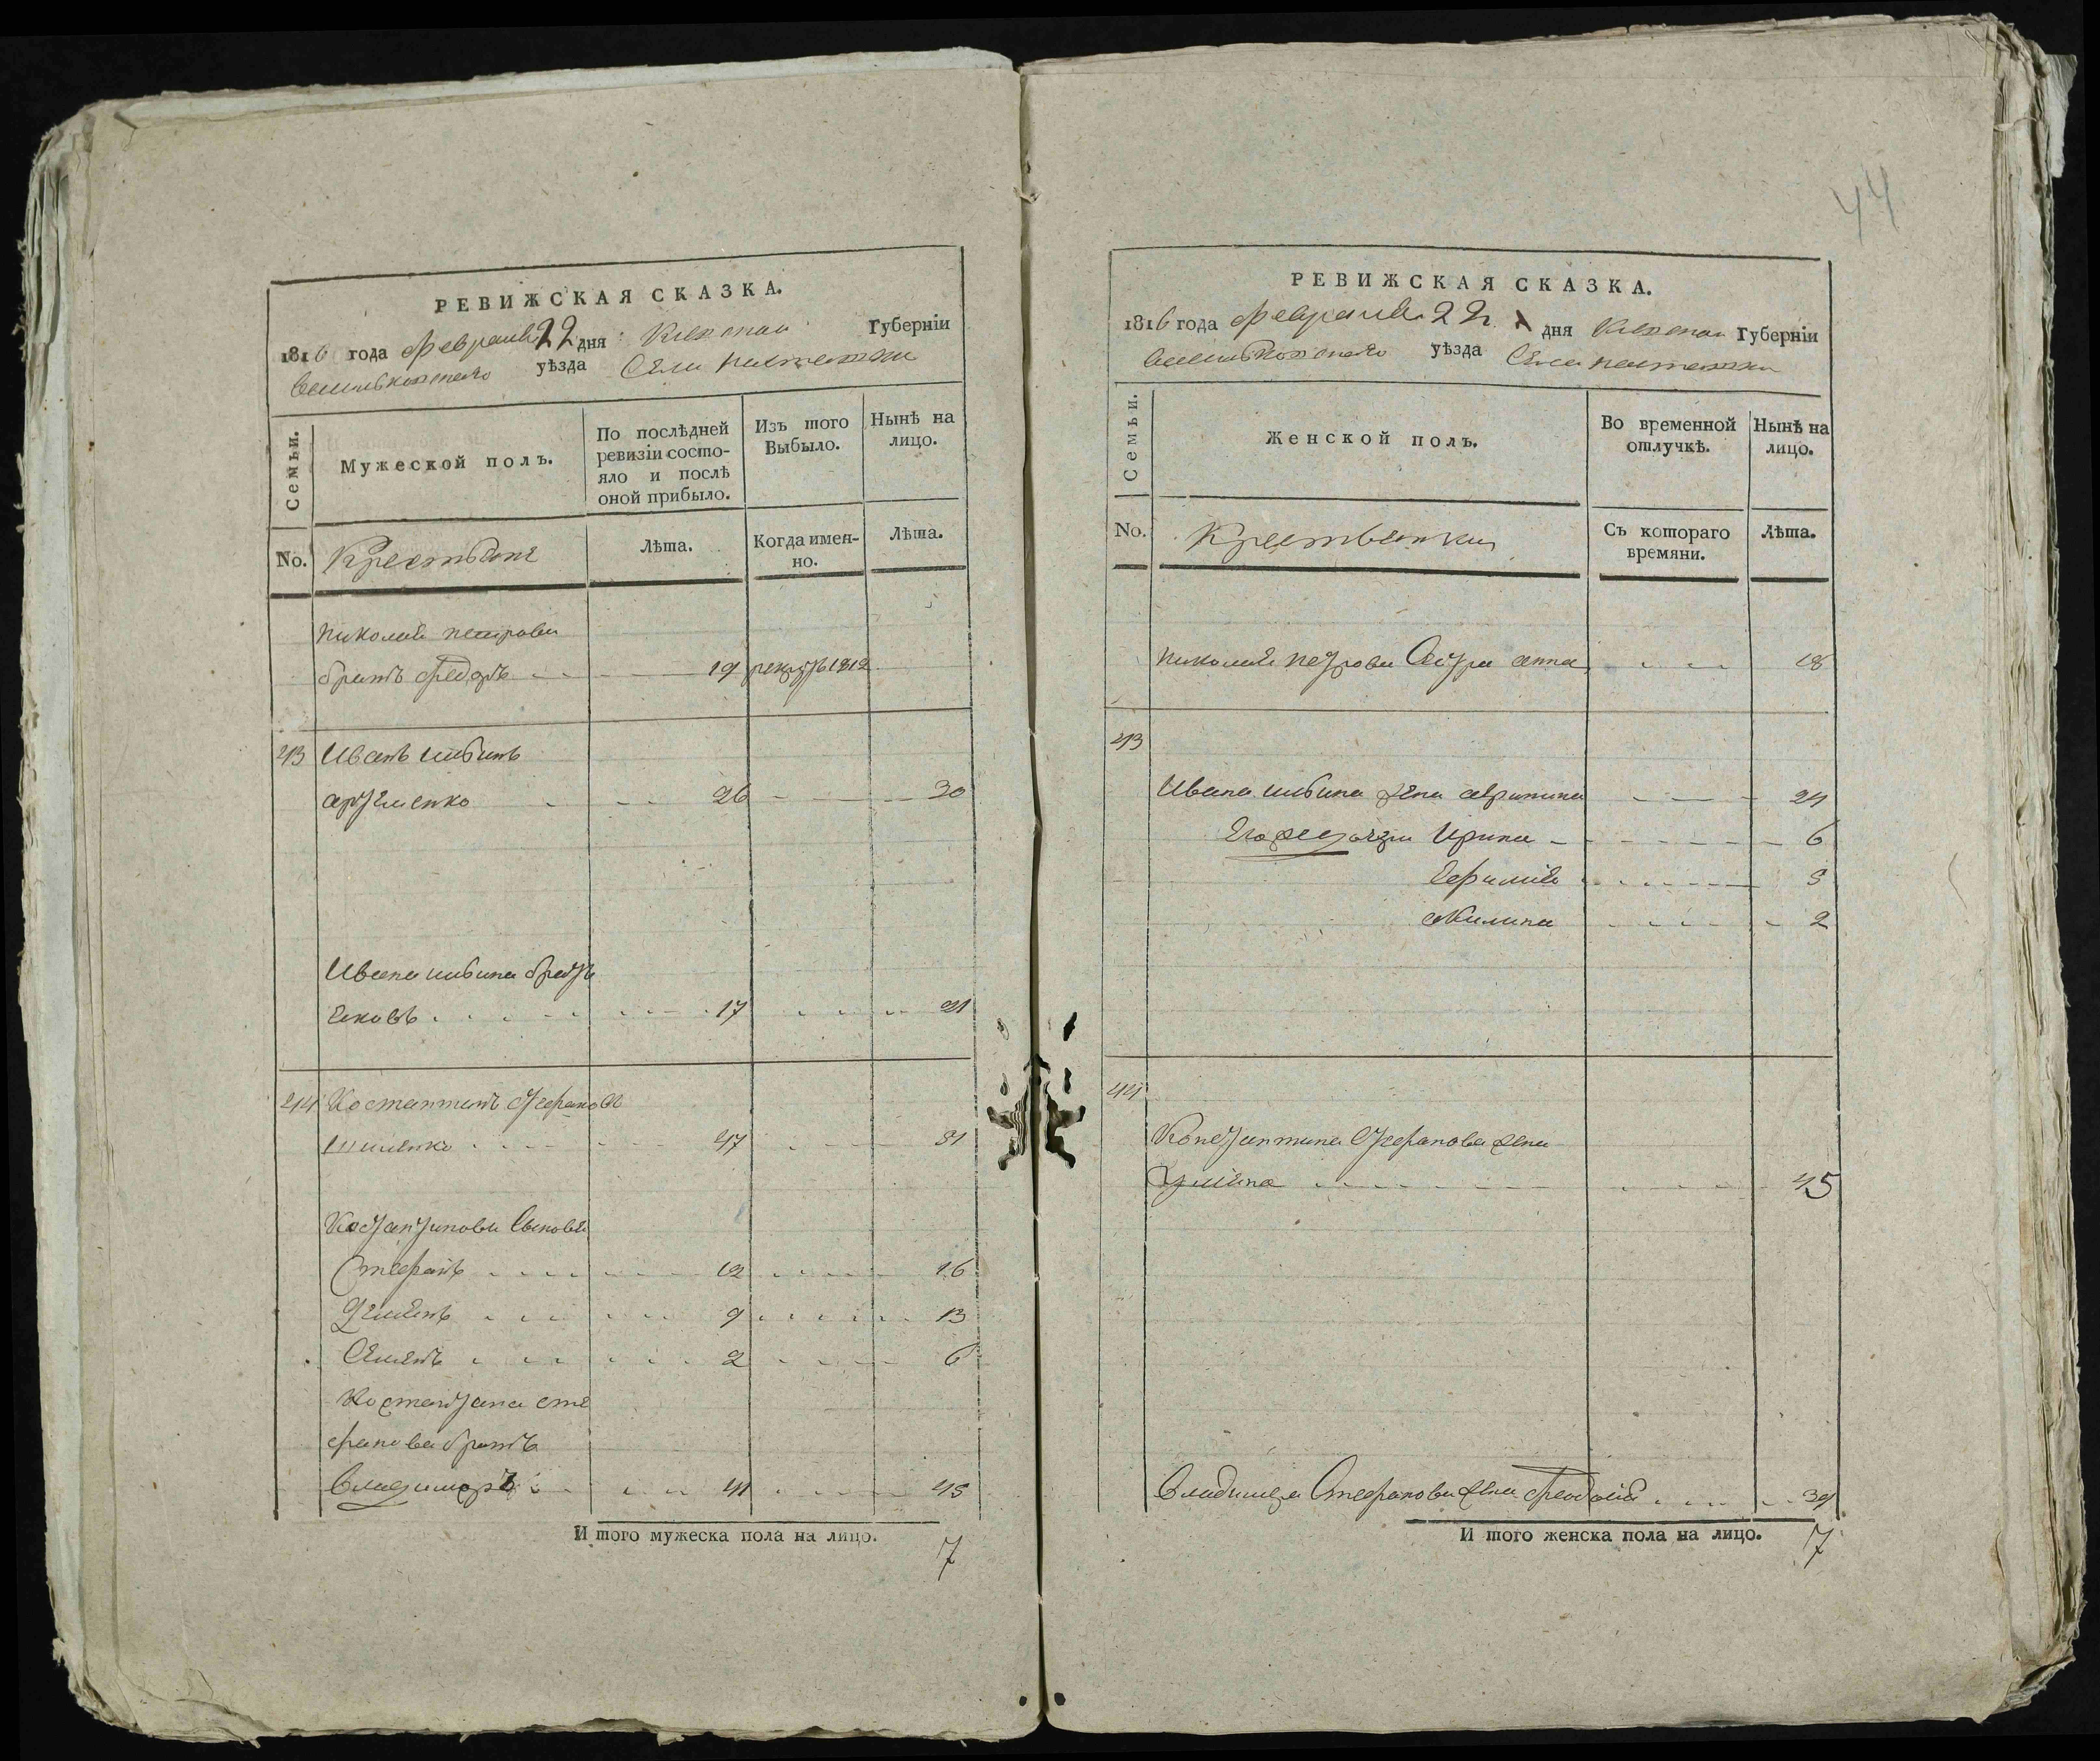 РЕВИЖСКАЯ СКАЗКА.
1816 года февраля 22 дня Киевской Губерніи
Васильковскаго уѣзда Села
Семьи.
Мужеской полъ.
По послѣдней ревизіи состояло и послѣ оной прибыло.
Изъ того Выбыло.
Нынѣ на лицо.
No.
Крестьяне
Лѣта.
Когда именно.
Лѣта.
Николая петрова
братъ федоръ 19 рекрутъ 1812
43 Иванъ
артеменко 26 30
Ивана братъ
Яковъ 17 21
44 Костантинъ Стефановъ
47 51
Костантинови Сыновя
Стефанъ 12 16
Демянъ 9 13
Семенъ 2 6
Костантина сте
фанова братъ
Владимеръ 41 45
И того мужеска пола на лицо. 7
44
РЕВИЖСКАЯ СКАЗКА.
1816 года февраля 22 дня Киевской Губерніи
Васильковскаго уѣзда Села
Семьи.
Женской полъ.
Во временной отлучкѣ.
Нынѣ на лицо.
No.
Крестьянки
Съ котораго времяни.
Лѣта.
Николая петрова Сестра анна 18
43
Ивана жена 24
Его же дочери Ирина 6
Ефимія 3
Акилина 2
44
Константина Стефанова жена
45
Владимера Стефанова жена Феодосія 39
И того женска пола на лицо. 7